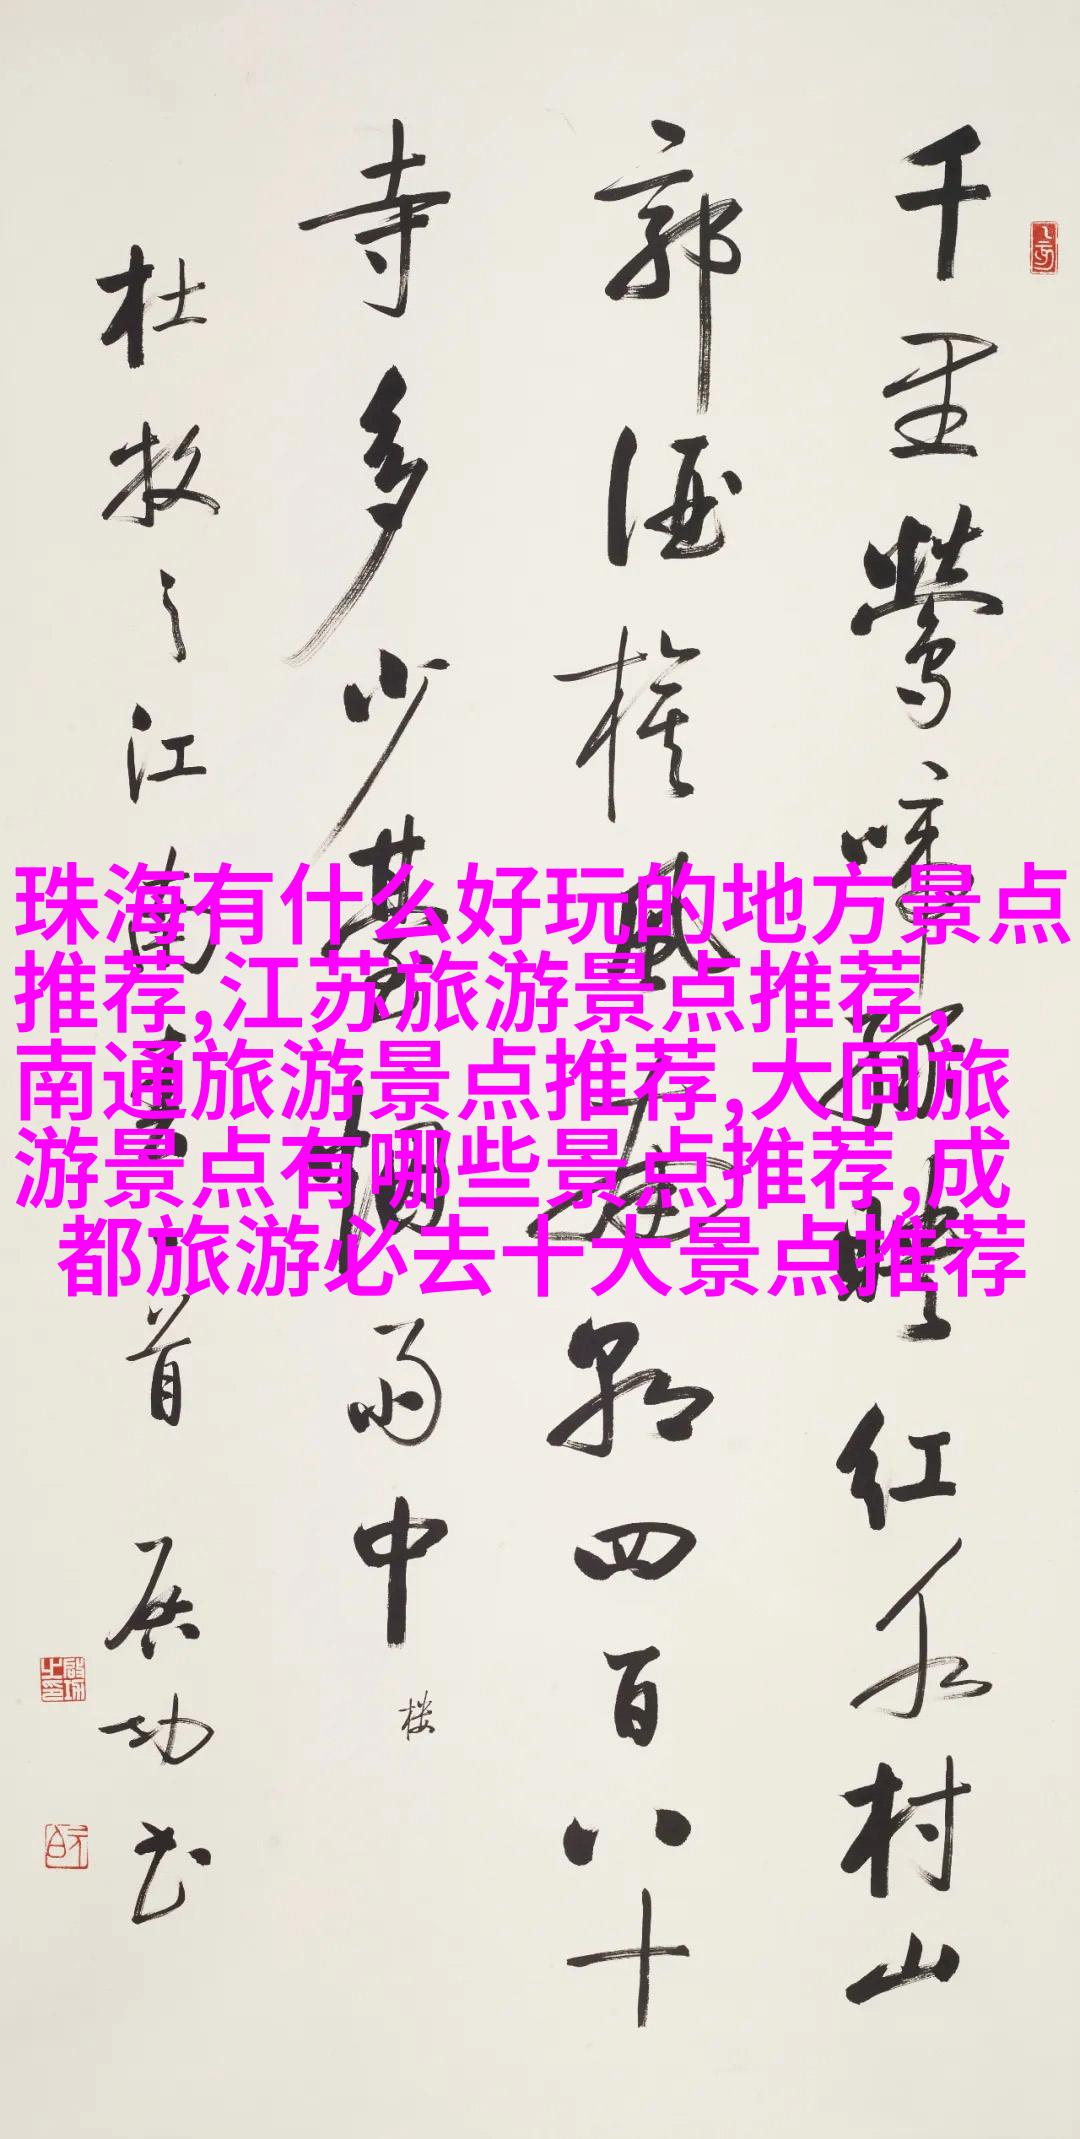 千里鶯啼绿映红水村山
郭酒旗風南朝四百八十
寺多少臺烟雨中
楼
杜牧之江南春一首 啟功书
珠海有什么好玩的地方景点
推荐,江苏旅游景点推荐,
南通旅游景点推荐,大同旅
游景点有哪些景点推荐,成
都旅游必去十大景点推荐